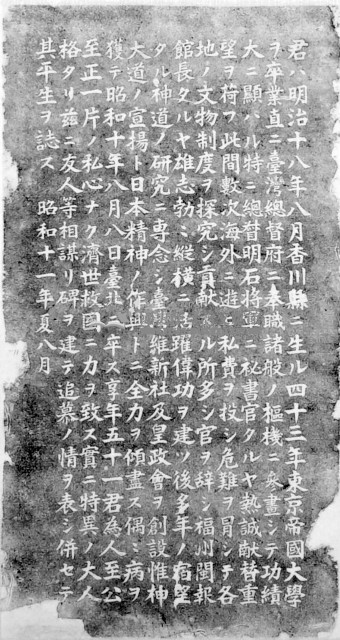 君ハ明治十八年八月香川縣ニ生ル四十三年東京帝國大學
ヲ卒業直ニ臺灣總督府ニ奉職諸般ノ樞機ニ參畫シテ功績
大ニ顯ハル特ニ總督明石將軍ニ祕書官タルヤ熱誠献替重
望ヲ荷フ此間數次海外ニ遊ヒ私費ヲ投シ危難ヲ冒シテ各
地ノ文物制度ヲ探究シ貢献スル所多シ官ヲ辞シ福州閩報
館長タルヤ雄志勃ニ縦橫ニ活躍偉功ヲ建ツ後多年ノ宿望
タル神道ノ研究ニ專念シ臺灣維新社及皇政會ヲ創設惟神
大道ノ宣揚ト日本精神ノ作興トニ全力ヲ傾盡ス偶ミ病ヲ
獲テ昭和十年八月八日臺北ニ卒ス享年五十一君為人至公
至正一片ノ私心ナク濟世救國ニ力ヲ致ス實ニ特異ノ大人
格タリ茲ニ友人等相謀リ碑ヲ建テ追慕ノ情ヲ表シ併セテ
其平生ヲ誌ス 昭和十一年夏八月